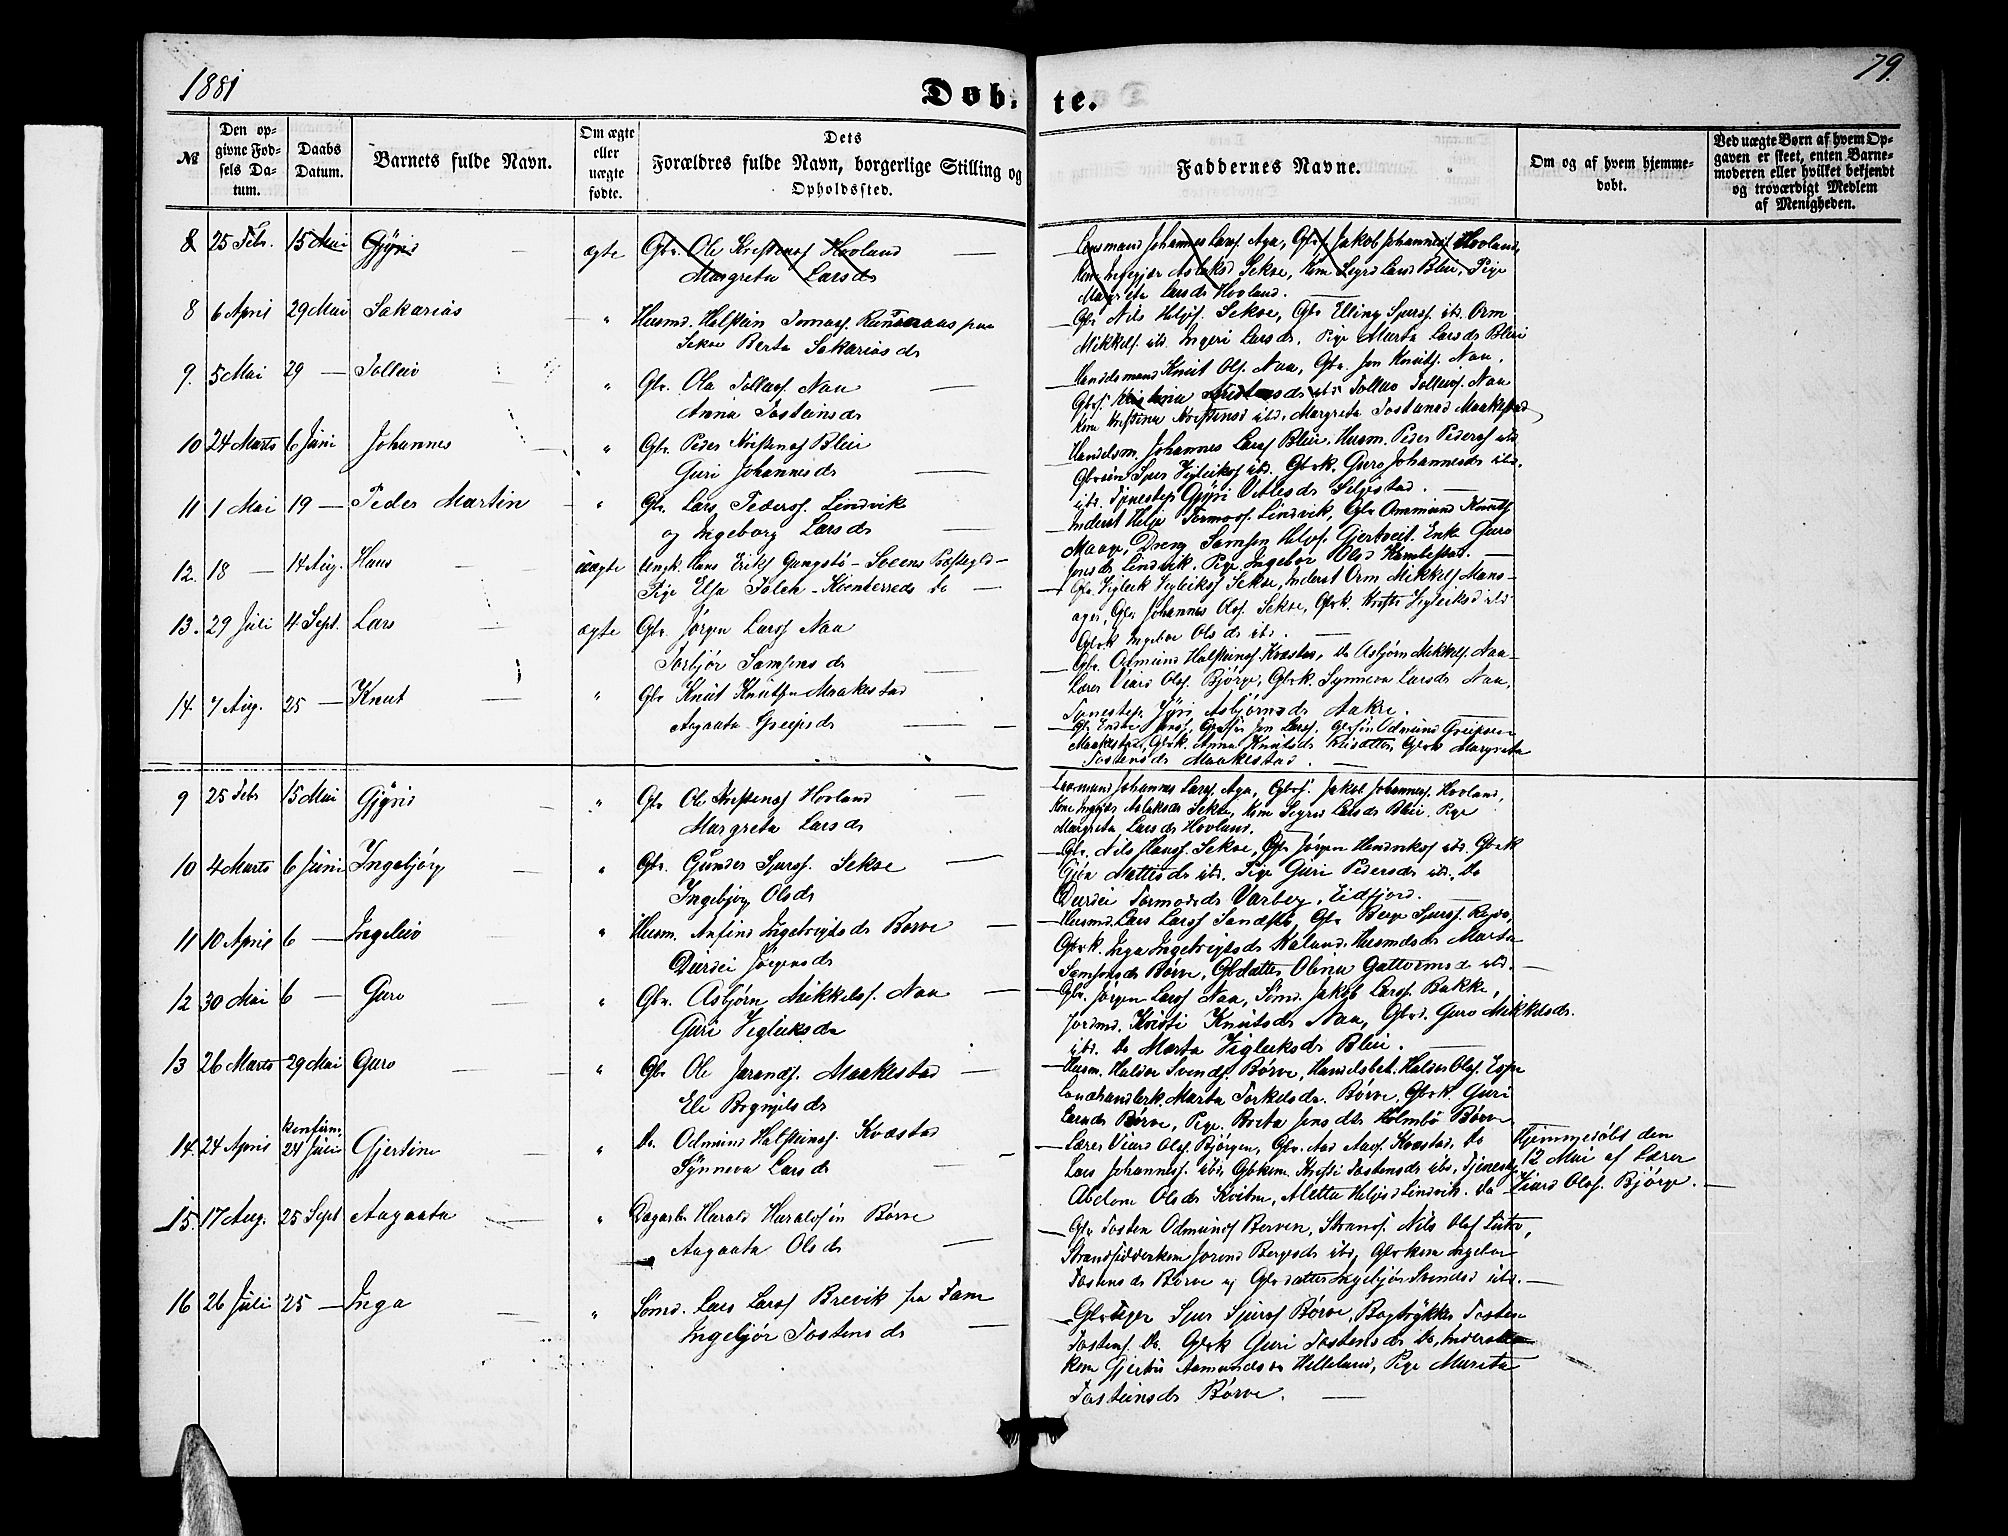 1881
79.
Døbte.
№
Den opgivne Fødsels Datum.
Daabs Datum.
Barnets fulde Navn.
Om ægte eller uægte fødte.
Dets Forældres fulde Navn, borgerlige Stilling og Opholdssted.
Faddernes Navne.
Om og af hvem hjemmedøbt.
Ved uægte Børn af hvem Opgaven er skeet, enten Barnemoderen eller hvilket bekjendt og troværdigt Medlem af Menigheden.
8 25 Febr. 15 Mai Gjyrid ægte Gbr. Ole Kristens. Hovland
Margreta Larsdr
Lensmand Johannes Lars. Aga, Gbrs. Jakob Johannes. Hovland,
Kone Ingebjør Aslaksd Sekse, Kone Sigrid Larsd Bleie, Pige
Margreta Larsdr Hovland.
8 6 April 29 Mai Sakarias " Husmd. Halstein Tomass. paa
Sekse Berta Sakariasdr
Gbr Nils Heljes. Sekse, Gbr Elling Spers. ibd. Orm
Mikkels. ibd. Ingeri Larsdr, Pige Marta Larsdr Bleie
9. 5 Mai 29 — Tolleiv " Gbr. Ola Tollefs. Naa
Anna Tosteinsdr
Handelsmand Knut Ols. Naa, Gbr. Jon Knuts. Naa,
Gbrs. ibd Tolleiv Tolleivs. Naa
Kone Kristina Kristensd ibd, Margreta Tostensd Maakestad
10 24 Marts 6 Juni Johannes " Gbr. Peder Kristens. Bleie
Guri Johannesdr
Handelsm. Johannes Lars. Bleie, Husm. Peder Peders. ibd.
Gbrsøn Sper Vigleiks. ibd. Gbrk. Guro Johannesdr ibd.
ibd. Tjenestep. Gyri Vetlesdr Seljestad. —
11 1 Mai 19 — Peder Martin " Gbr. Lars Peders. Lindvik
og Ingeborg Larsdr
Inderst Helje Tormos. Lindvik, Gbr Ommund Knuts.
Maage, Dreng Samson Helgs. Gjertveit. Enke Guro
Jonsdr Lindvik. Pige Ingebor Olsd
12. 18 — 14 Aug. Hans uægte Ungk. Hans Eriks. — Præstegjld —
Pige Elsa — Kvinherreds do
Gbr. Vigleik Vigleiks. Sekse, Inderst Orm Mikkels. Mans-
ager, Gbr. Johannes Ols. Sekse, Gbrk. Vigleiksd ibd
Gbrk Ingebor Olsdr ibd.
13. 29 Juli 4 Sept. Lars ægte Gbr. Jørgen Lars. Naa
Torbjør Samsonsdr
Gbr. Odmund Halsteins. Kvæstad, do Asbjørn Mikkels. Naa
Lærer Viard Ols. Bjørge, Gbrk. Synneva Larsdr Naa,
Tjenestep. Jyri Asbjørnsdr Aakre.
14. 7 Aug. 25 — Knut " Gbr Knut Knutsen Maakestad
Aagaata Greipsdr
Gbr. Jons., Gbrsøn Jon Lars., Gbrsøn Odmund Greipsen
Maakestad, Gbrk. Anna Knutsdr Gbrk Margreta
Tostensdr Maakestad. —
9 25 Febr 15 Mai Gjyrid " Gbr Ole Kristens. Hovland
Margreta Larsdr
Lensmand Johannes Lars. Aga, Gbrs. Jakob Johannes. Hovland,
Kone Ingebjør Aslaksdr Sekse, Kone Sigrid Larsdr Bleie. Pige
Margreta Larsdr Hovland.
10 4 Marts 6 Juni Ingebjørg " Gbr. Gunder Spers. Sekse
Ingebjørg Olsdr
Gbr. Nils Hans. Sekse, Gbr Jørgen Hendriks. ibd. Gbrk
Gjøa Mattisdr ibd. Pige Guri Pedersdr ibd. Do
Durdei Tormodsdr Varberg, Eidfjord.
11 10 April 6 — Ingeleiv " Husm. Anfind Ingebrigtsdr Børve
Durdei Jørgensdr
Husmd. Lars Lars. Sandstø, Gbr Berge Spers.
Gbrk. Inga Ingebrigtsdr Husmdsdr Marta
Samsonsdr Børve, Gbdatter Olina Guttormsd ibd. —
12 30 Mai 6 — Guro " Gbr. Asbjørn Mikkels. Naa
Guri Vigleiksdr
Gbr. Jørgen Lars. Naa, Sømd. Jakob Lars. Bakke,
Jordmd. Kristi Knutsdr Naa, Gbrd. Guro Mikkelsdr.
ibd. Do Marta Vigleiksdr Bleie.
13 26 Marts 29 Mai Guro " Gbr Ole Jarands. Maakestad
Eli Brynjelsdr
Husm. Haldor Svends. Børve, Handelsbet. Haldor Ols. Espe
Landhandlerk. Marta Torkelsdr. Børve, Gbrk. Guri
Børve, Pige. Breta Jonsdtr Holmbø Børve
14. 24 April Konfirm. 24 Juli Gjertine " do. Odmund Halsteins. Kvæstad
Synneva Larsdr
Lærer Viard Ols. Bjørgen, Gbr. Aad Aads. Kvæstad, do
Lars Johannes. ibd, Gbkone Kristi Tostensdr ibd, Tjenestep
Abelone Olsdr Kvitne, Aletta Heljesd Lindvik. do
Hjemmedøbt den
12 Mai af Lærer
Viard Ols. Bjørge. —
15. 17 Aug. 25 Sept Aagaata " Dagarb. Harald Haraldsøn Børve
Aagaata Olsdr
Gbr Tosten Odmunds. Berven, Strands. Nils Ols.
Strandsidderkone Jorend Bergesdr ibd, Gbrkone Ingebor
Tostensdr Børve og Gbrdatter Ingebjør Svendsd ibd. —
16 26 Juli 25 — Inga " Sømd. Lars Lars. Brevik fra
Ingebjør Tostensdr
Sper Spers. Børve, Bogtrykker Tosten
Tostens. do. Gbrk Guri Tostensdr do, Inderst
kone Gjertrú Aamundsdr Helleland, Pige Marita
Tosteinsdr Børve. —